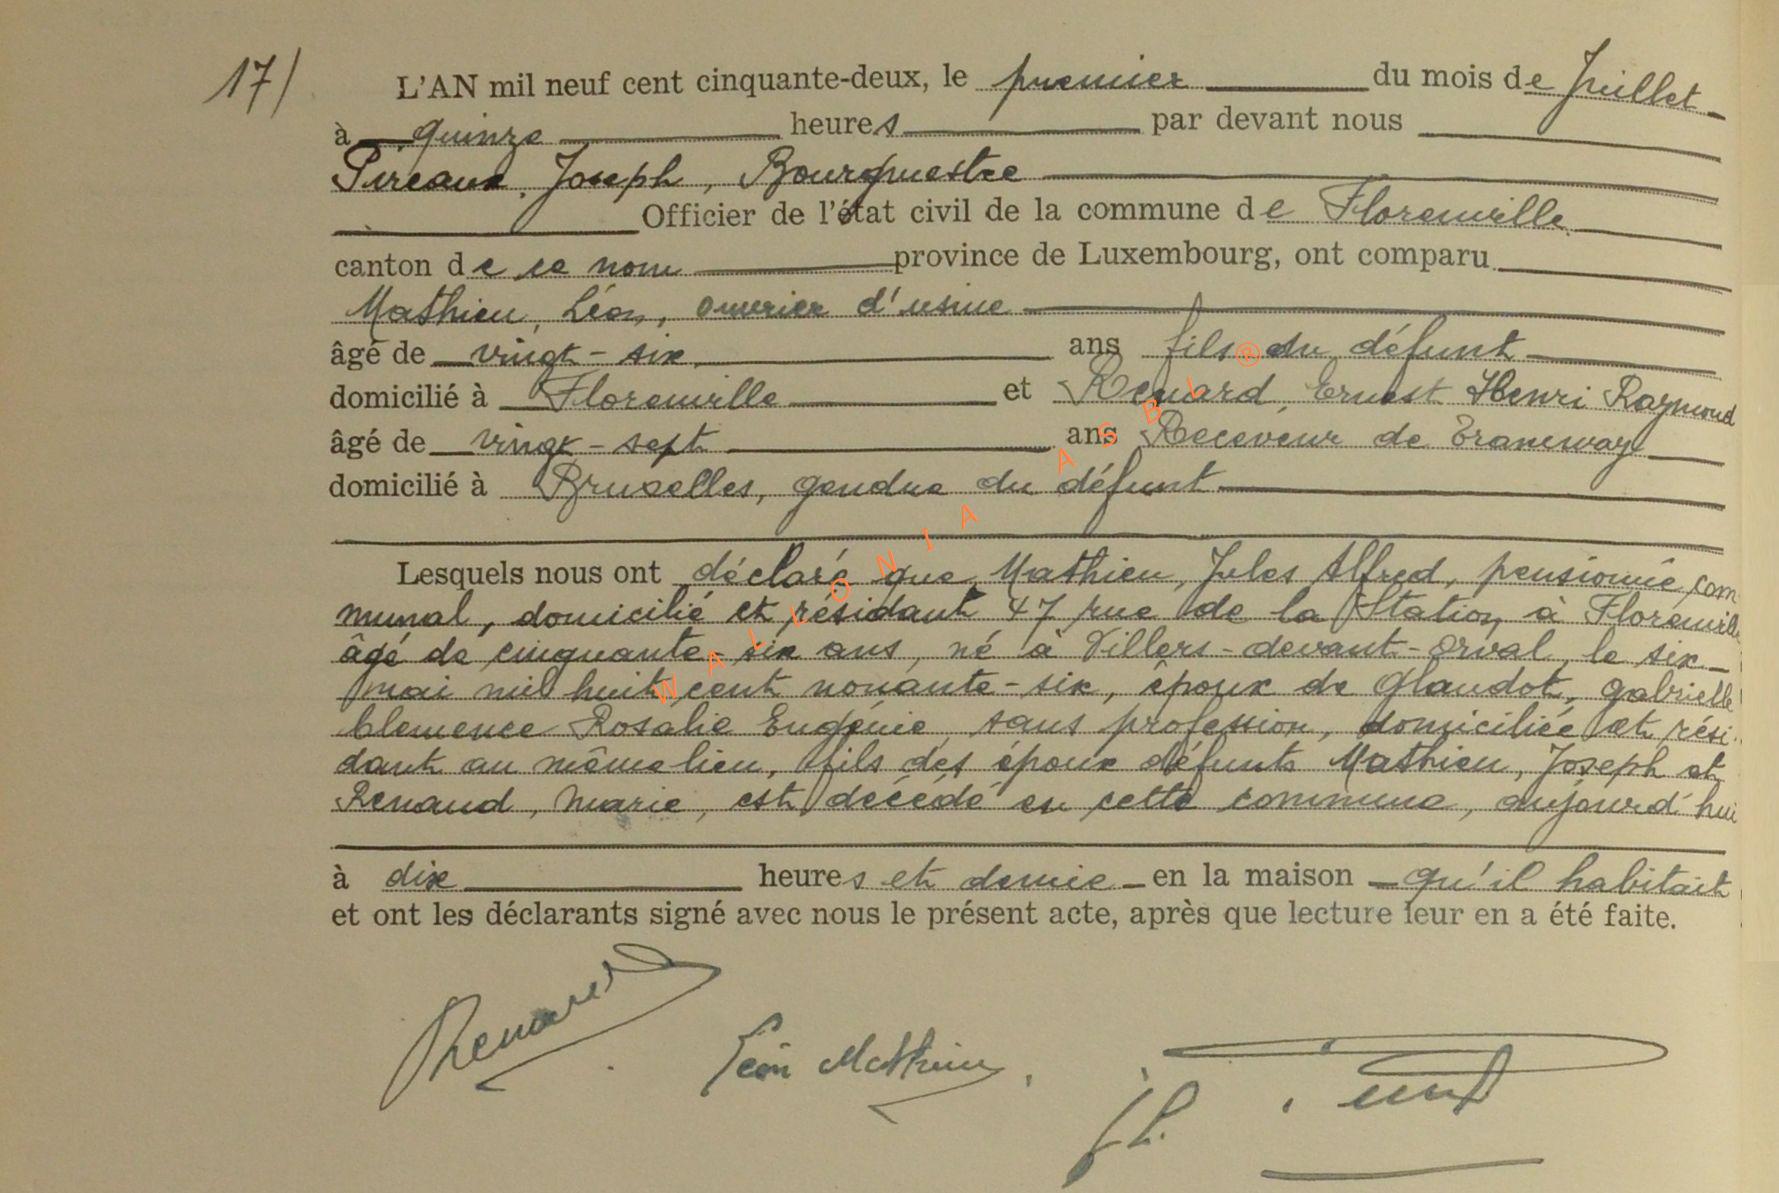 17/
L'AN mil neuf cent cinquante-deux, le premier du mois de Juillet
à quinze heures par devant nous
Pireaux, Joseph, Bourgmestre
Officier de l'état civil de la commune de Florenville
canton de ce nom province de Luxembourg, ont comparu
Mathieu, Léon, ouvrier d'usine
âgé de vingt-six ans fils du défunt
domicilié à Florenville et Renard, Ernest Henri Raymond
âgé de vingt-sept ans Receveur de Tramway
domicilié à Bruxelles, gendre du défunt
Lesquels nous ont déclaré que Mathieu, Jules Alfred, pensionné com
munal, domicilié et résidant 47 rue de la Station, à Florenville
âgé de cinquante-six ans, né à Villers-devant-Orval, le six
mai mil huit cent nonante-six, époux de Glaudot, Gabrielle
Clemence Rosalie Eugénie, sans profession, domiciliée et rési-
dant au même lieu, fils des époux défunts Mathieu, Joseph et
Renaud, Marie, est décédé en cette commune, aujourd'hui
à dix heures et demie en la maison qu'il habitait
et ont les déclarants signé avec nous le présent acte, après que lecture leur en a été faite.
Renard
Léon Mathieu
WALLONIA ASBL ®